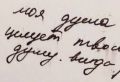 моя душа
целует твою
душу. вода